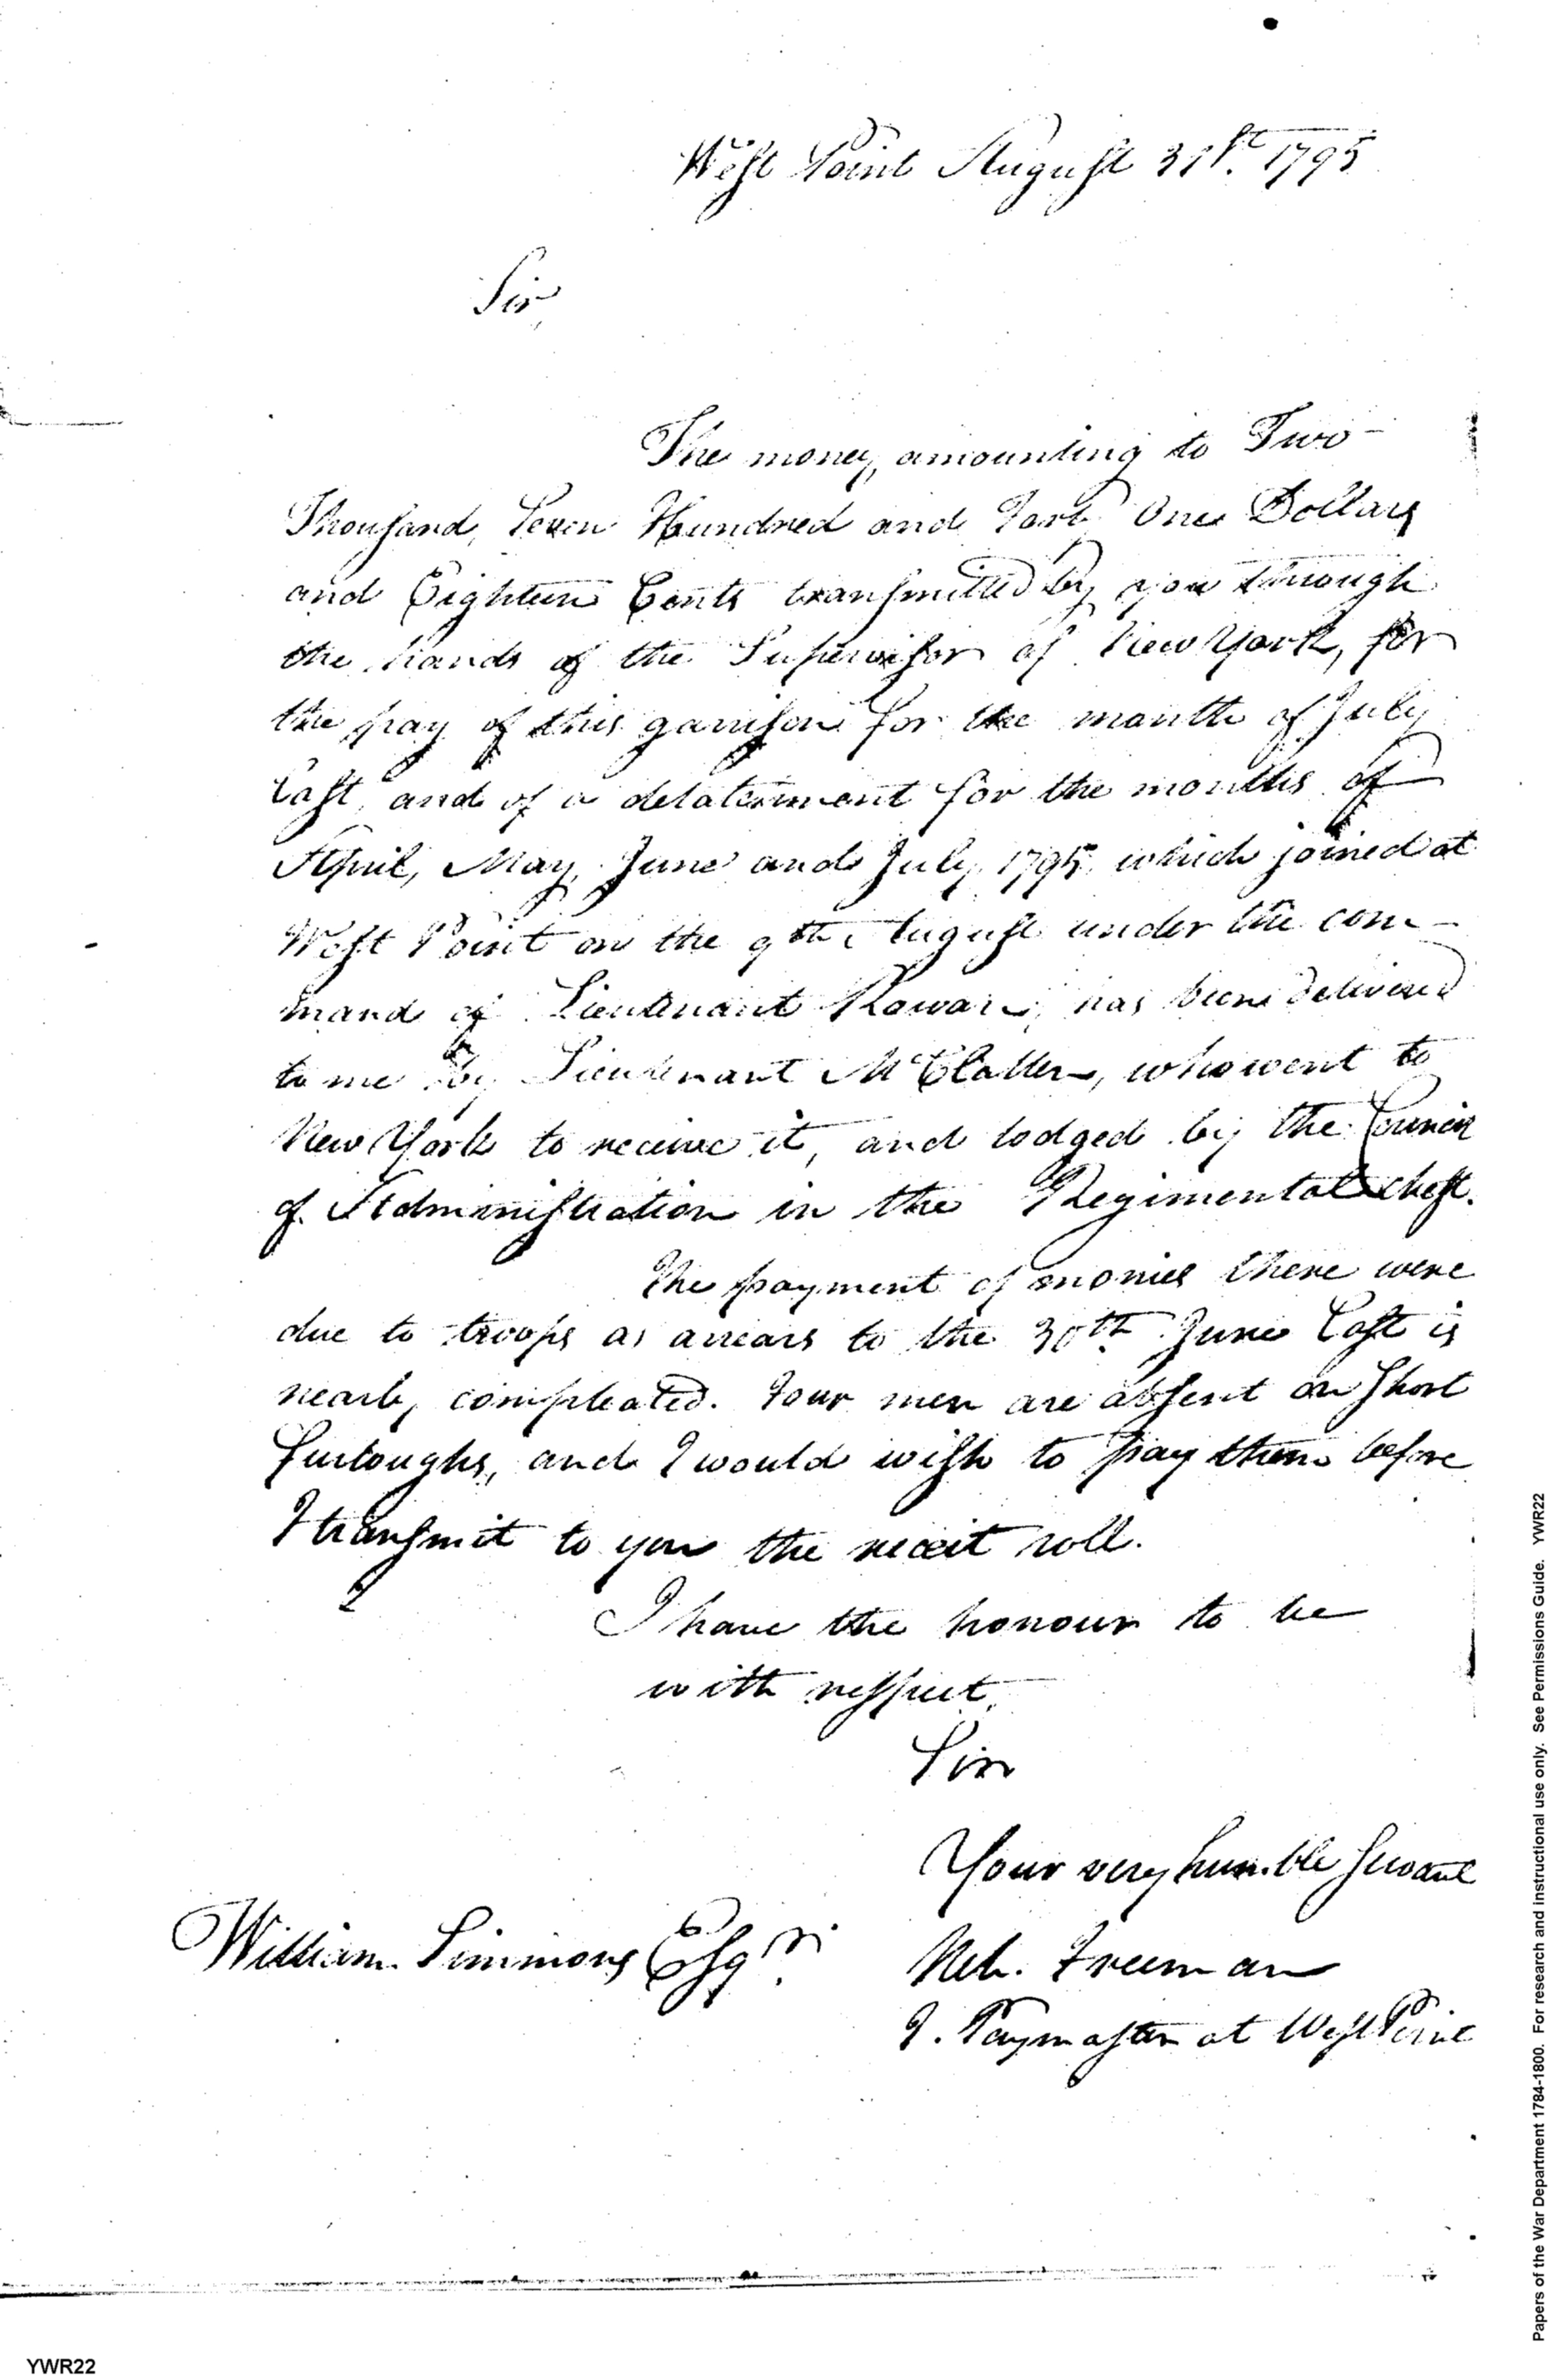 West Point August 31st. 1795
Sir,
The money, amounting to Two
Thousand, Seven Hundred and Forty One Dollars
and Eighteen Cents transmitted by you through
the hands of the Supervisor of New York, for
the pay of this garrison for the month of July
last, and of a detatchment for the months of
April, May, June and July 1795, which joined at
West Point on the 9th August under the com-
mand of Lieutenant Rowan, has been delivered
to me by Lieutenant McClallen, who went to
New York to receive it, and lodged by the Council
of Administration in the Regimental chest.
The payment of monies there were
due to troops as arrears to the 30th June last is
nearly compleated. Four men are absent on short
furloughs, and I would wish to pay them before
I transmit to you the receit roll.
I have the honour to be
with respect,
Sir
Your very humble servant
William Simmons Esqr.
Neh. Freeman
Paymaster at West Point
Papers of the War Department 1784-1800. For research and instructional use only. See Permissions Guide. YWR22
YWR22